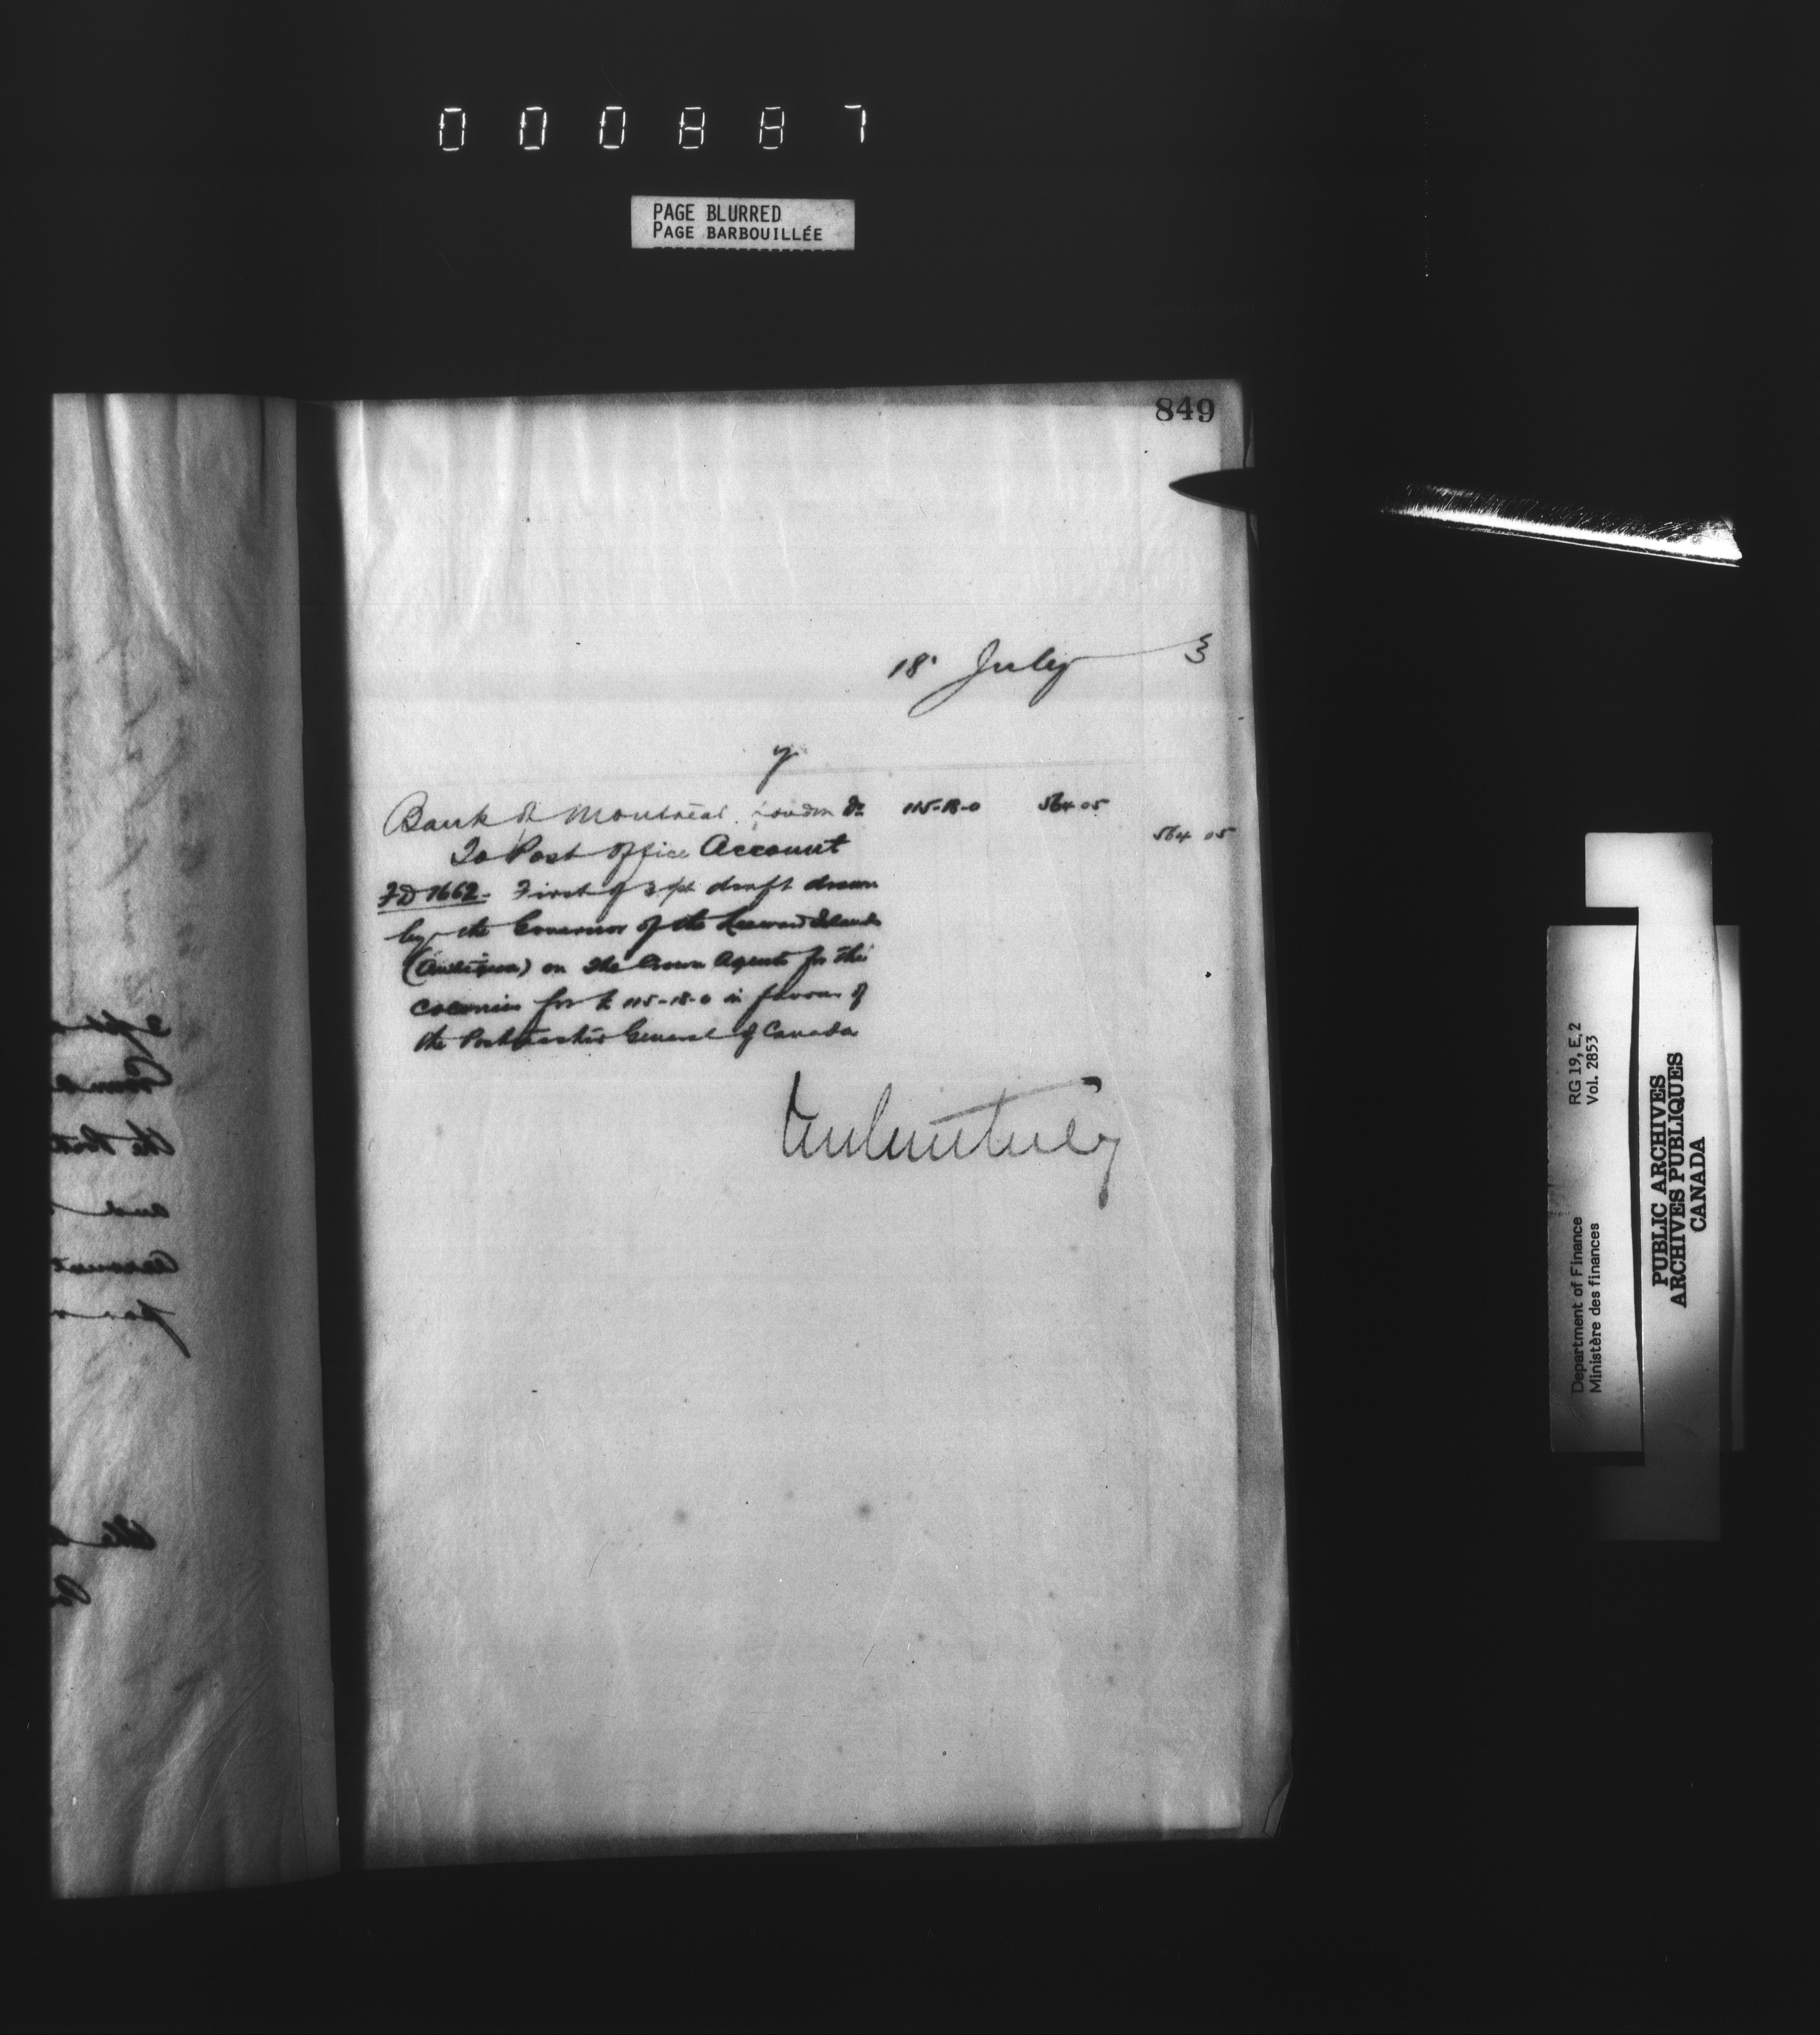 000887
PAGE BLURRED
PAGE BARBOUILLÉE
849
18 July 3
Bank of Montreal London Dr 115-18-0 564 05
To Post Office Account 564 05
FD 1662. First of 3 pt draft drawn
by the Governor of the Leeward Islands
(Antigua) on the Crown Agents for the
Colonies for £ 115-18-0 in favour of
the Postmaster General of Canada
RG 19, E, 2
Vol. 2853
Department of Finance
Ministère des finances
PUBLIC ARCHIVES
ARCHIVES PUBLIQUES
CANADA